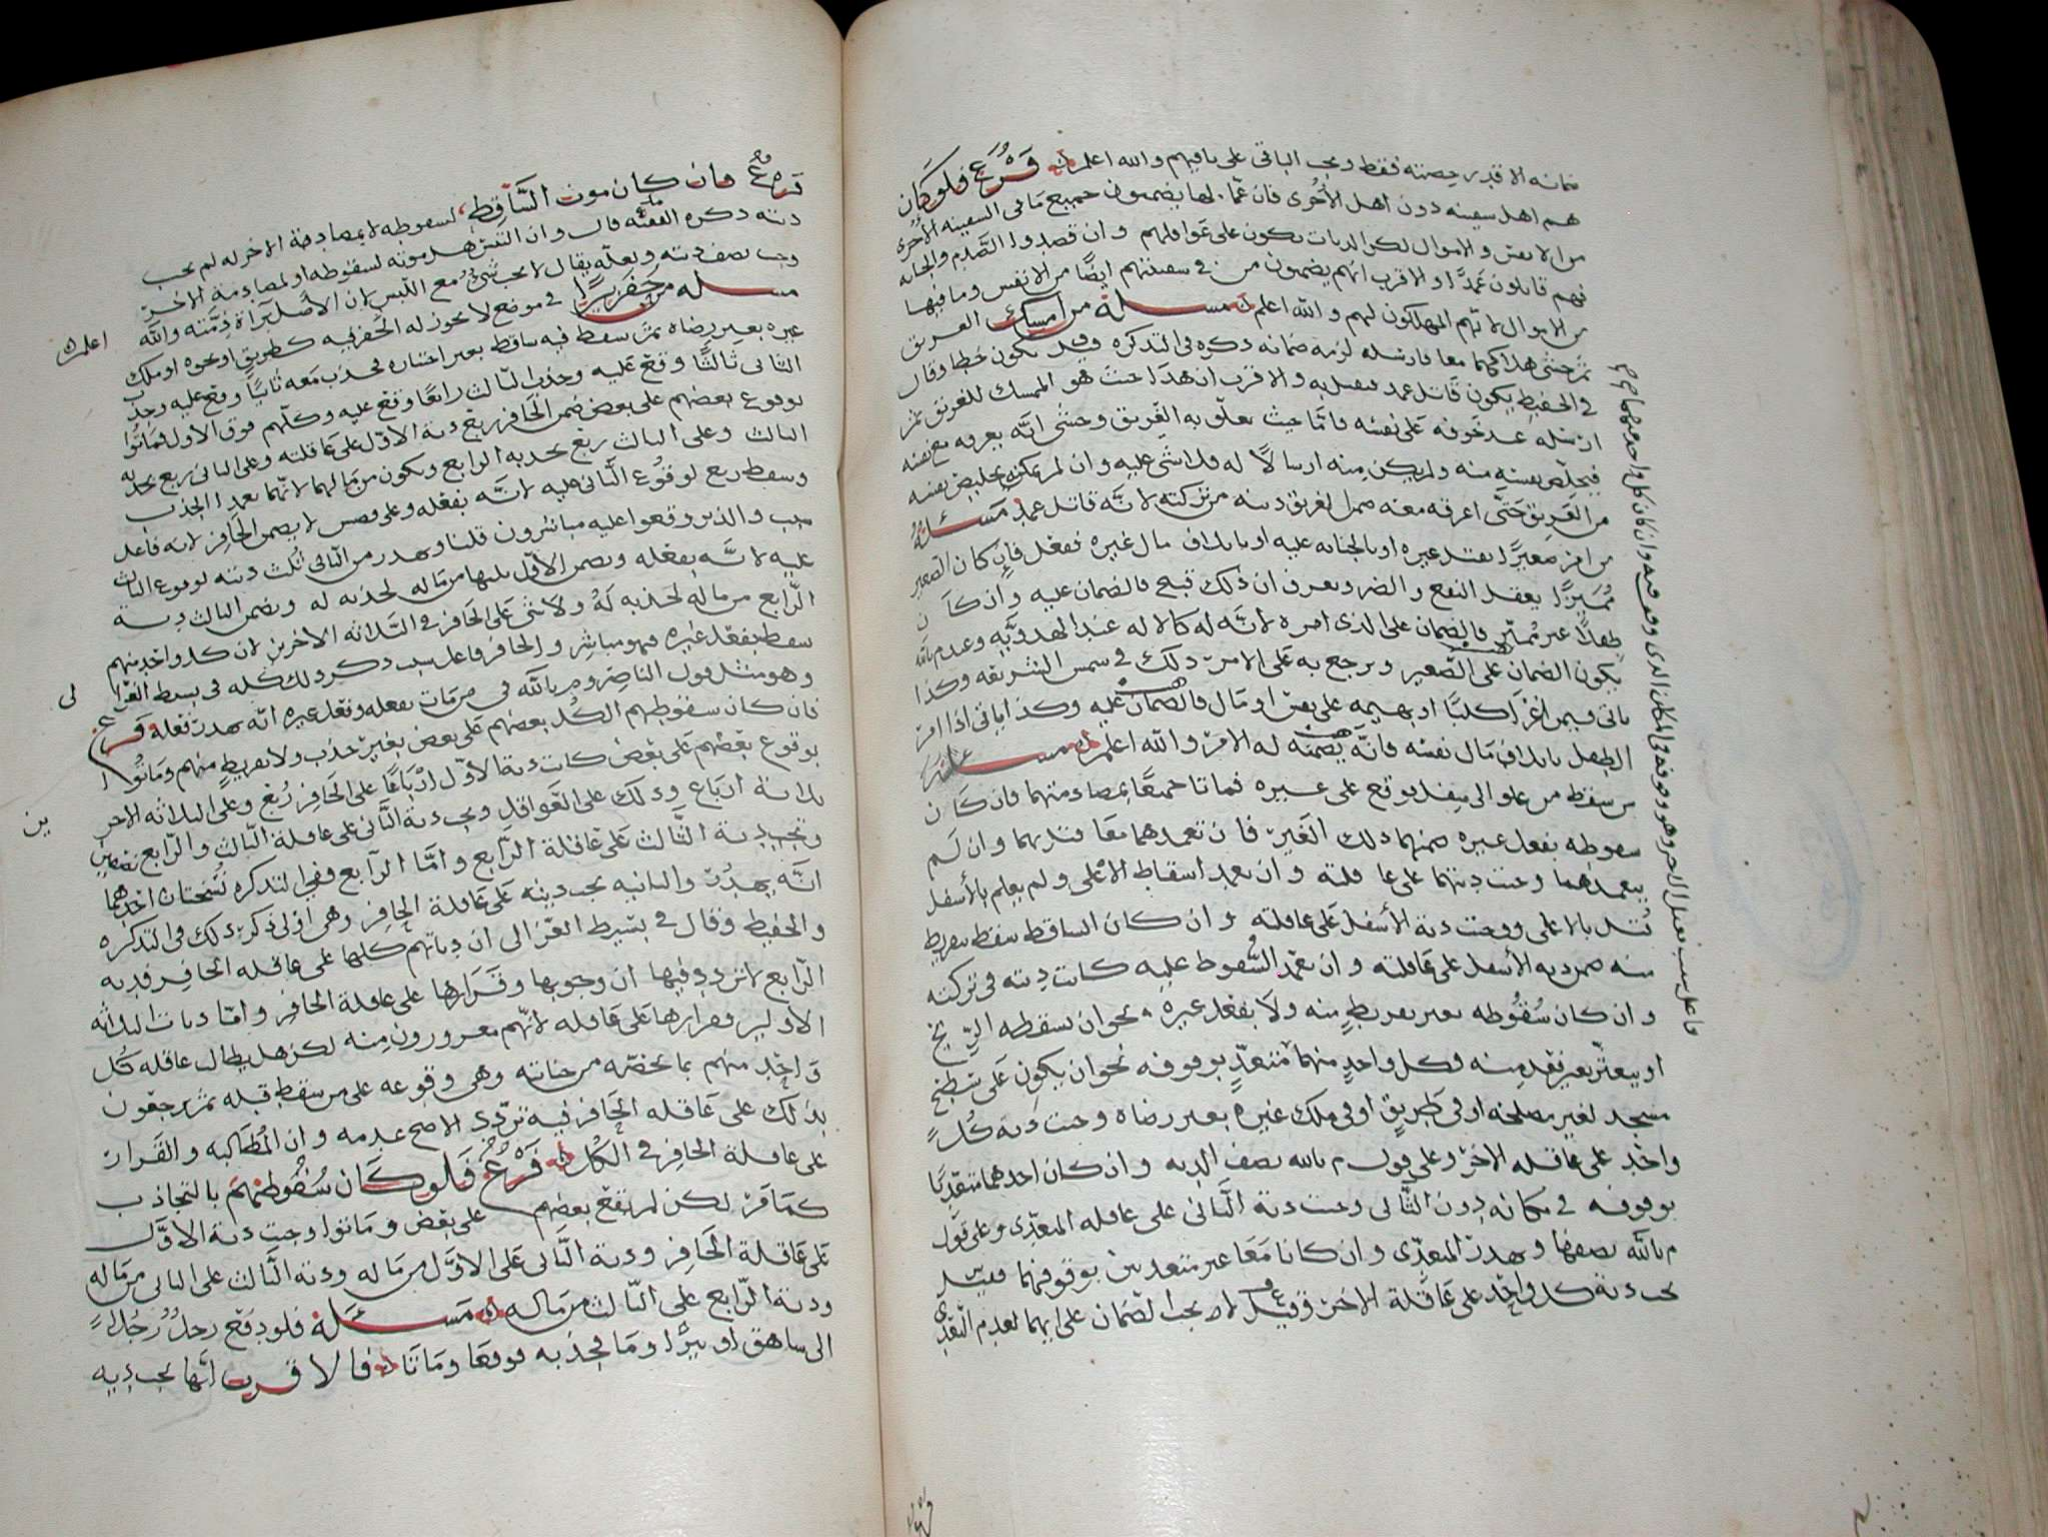 ضمانه الا قدر حصته فقط ويجب الباقي على باقيهم والله اعلم فرع فلو كان
هم اهل سفينه دون اهل الأخرى فان عمالها يضمنون جميع ما في السفينه الأخرى
من الانفس والاموال لكن الديات تكون على عواقلهم وان قصدوا الصدم والجناية
فهم قاتلون عمدا والاقرب انهم يضمنون من في سفينتهم ايضا من الانفس وما فيها
من الاموال لانهم المهلكون لهم والله اعلم مسله من امسك الغريق
ثم خشي هلاكهما معا فارسله لزمه ضمانه ذكره في التذكره وقيل يكون خطا وقال
في الحفيظ يكون قاتل عمد فيقتل به والاقرب ان هذا حيث هو الممسك للغريق ثم
ارسله عند خوفه على نفسه فاما حيث تعلق به الغريق وخشي انه يغرقه مع نفسه
فيخلص نفسه منه ولم يكن منه ارسالا له فلا شي عليه وان لم يمكنه تخليص نفسه
من الغريق حتى اغرقه معه ضمن الغريق ديته من تركته لانه قاتل عمد مسئلة
من امر صغيرا بقتل غيره او بالجنايه عليه او باتلاف مال غيره ففعل فان كان الصغير
مميزا يعقل النفع والضر ويعرف ان ذلك قبيح فالضمان عليه وان كان
طفلا غير مميز فالضمان على الذي امره لانه له كالاله عند الهدويه وعند م بالله
يكون الضمان على الصغير ويرجع به على الامر ذلك في شمس الشريعه وكذا
ياتي فيمن اغرا كلبا او بهيمه على نفس او مال فالضمان عليه وكذا ياتي اذا امر
الطفل باتلاف مال نفسه فانه يضمنه له الامر والله اعلم مسله
من سقط من علو الى سفل فوقع على غيره فماتا جميعا بمصادمتهما فان كان
سقوطه بفعل غيره ضمنهما ذلك الغير فان تعمدهما معا قتل بهما وان لم
يتعمدهما وجبت ديتهما على عاقلته وان تعمد اسقاط الاعلى ولم يعلم بالأسفل
قتل بالاعلى ووجبت دية الأسفل على عاقلته وان كان الساقط سقط بتفريط
منه ضمن دية الأسفل على عاقلته وان تعمد السقوط عليه كانت ديته في تركته
وان كان سقوطه بغير تفريط منه ولا بفعل غيره نحو ان تسقطه الريح
او يتعثر بغير تعد منه فكل واحد منهما متعد بوقوفه نحو ان يكون على سطح
مسجد لغير مصلحه او في طريق او في ملك غيره بغير رضاه وجبت دية كل
واحد على عاقله الاخر وعلى قول م بالله نصف الديه وان كان احدهما متعديا
بوقوفه في مكانه دون الثاني وجبت دية الثاني على عاقله المتعدي وعلى قول
م بالله نصفها وهدر المتعدي وان كانا معا غير متعديين بوقوفهما فقيل
تجب دية كل واحد على عاقلة الاخر وقيل لا يجب الضمان على ايهما لعدم التعدي
فرع فان كان موت الساقط لسقوطه لا بمصادمة الاخر له لم تجب
ديته ذكره الفقيه قال وان التبس هل موته لسقوطه او لمصادمة الاخر
وجب نصف ديته ولعله يقال لا يجب شي مع اللبس لان الأصل براة ذمته والله
اعلم
مسله من حفر بيرا في موضع لا يجوز له الحفر فيه كطريق او نحوه او ملك
غيره بغير رضاه ثم سقط فيه ساقط بغير اختياره فجذب معه ثانيا وقع عليه وجذب
الثاني ثالثا وقع عليه وجذب الثالث رابعا وقع عليه وكلهم فوق الاول فماتوا
بوقوع بعضهم على بعض ضمن الحافر ربع دية الاول على عاقلته وعلى الثاني ربع بجذبه
الثالث وعلى الثالث ربع بجذبه الرابع ويكون من مالهما لانهما تعمدا الجذب
وسقط ربع لوقوع الثاني عليه لانه بفعله وعلى لا يضمن الحافر لانه فاعل
سبب والذين وقعوا عليه مباشرون قلنا وهدر من الثاني ثلث ديته لوقوع الثالث
عليه لانه بفعله ويضمن الاول ثلثها من ماله لجذبه له ويضمن الثالث دية
الرابع من ماله لجذبه له ولا شي على الحافر في الثلاثه الاخرين لان كل واحد منهم
سقط بفعل غيره فهو مباشر والحافر فاعل سبب ذكر ذلك كله في بسط الغزالي
وهو مثل قول الناصر وم بالله في من مات بفعله وفعل غيره انه يهدر فعله فرع
فان كان سقوطهم الكل بعضهم على بعض بغير جذب ولا تفريط منهم وماتوا
بوقوع بعضهم على بعض كانت دية الاول ارباعا على الحافر ربع وعلى الثلاثه الاخرين
ثلاثة ارباع وذلك على العواقل وتجب دية الثاني على عاقلة الثالث والرابع نصفين
وتجب دية الثالث على عاقلة الرابع واما الرابع ففي التذكره نسختان احدهما
انه يهدر والثانيه تجب ديته على عاقلة الحافر وهي اولى ذكر ذلك في التذكره
والحفيظ وقال في بسيط الغزالي ان دياتهم كلها على عاقله الحافر فديه
الرابع لا تردد فيها ان وجوبها وقرارها على عاقلة الحافر واما ديات الثلاثه
الاولين فقرارها على عاقله لانهم مغرورون منه لكن هل يطالب عاقله كل
واحد منهم بما يخصه من جنايته وهي وقوعه على من سقط قبله ثم يرجعون
بذلك على عاقله الحافر فيه تردد الاصح عدمه وان المطالبه والقرار
على عاقلة الحافر في الكل فرع فلو كان سقوطهم بالتجاذب
كما مر لكن لم يقع بعضهم على بعض وماتوا وجبت دية الاول
على عاقلة الحافر ودية الثاني على الاول من ماله ودية الثالث على الثاني من ماله
ودية الرابع على الثالث من ماله مسئلة فلو دفع رجل رجلا
الى ساهق او بيرا وما لجذبه فوقعا وماتا فالاقرب انها تجب ديه